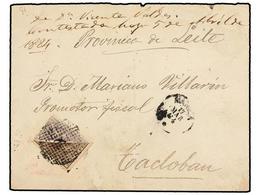 de Dn. Vicente Valdes,
contestada hoy 5 de Abril de
1884. Provincia de Leite
Sr. D. Mariano Villarin
Promotor fiscal
Tacloban